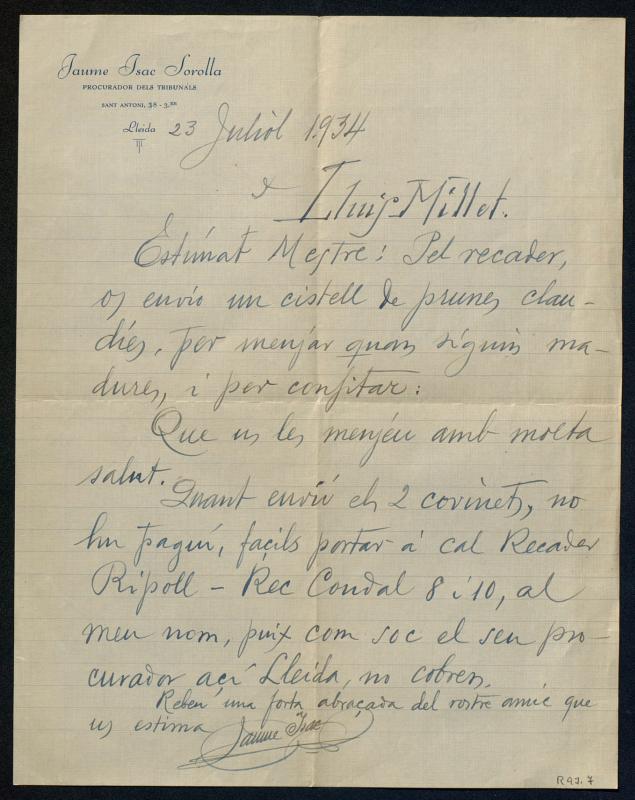 Jaume Isac Sorolla
PROCURADOR DELS TRIBUNALS
SANT ANTONI, 38 - 3.ER
Lleida 23 Juliòl 1934
Lluis Millet.
Estimat Mestre: Pel recader,
os envio un cistell de prunes clau-
dies, per menjar quan siguin ma-
dures, i per confitar:
Que us les menjéu amb molta
salut.
Quant enviú els 2 covinets, no
hu paguí, façils portar á cal Recader
Ripoll - Rec Condal 8 i 10, al
meu nom, puix com soc el seu pro-
curador ací Lleida, no cobren.
Rebeu una forta abraçada del vostre amic que
us estima Jaume Isac
R 93.7